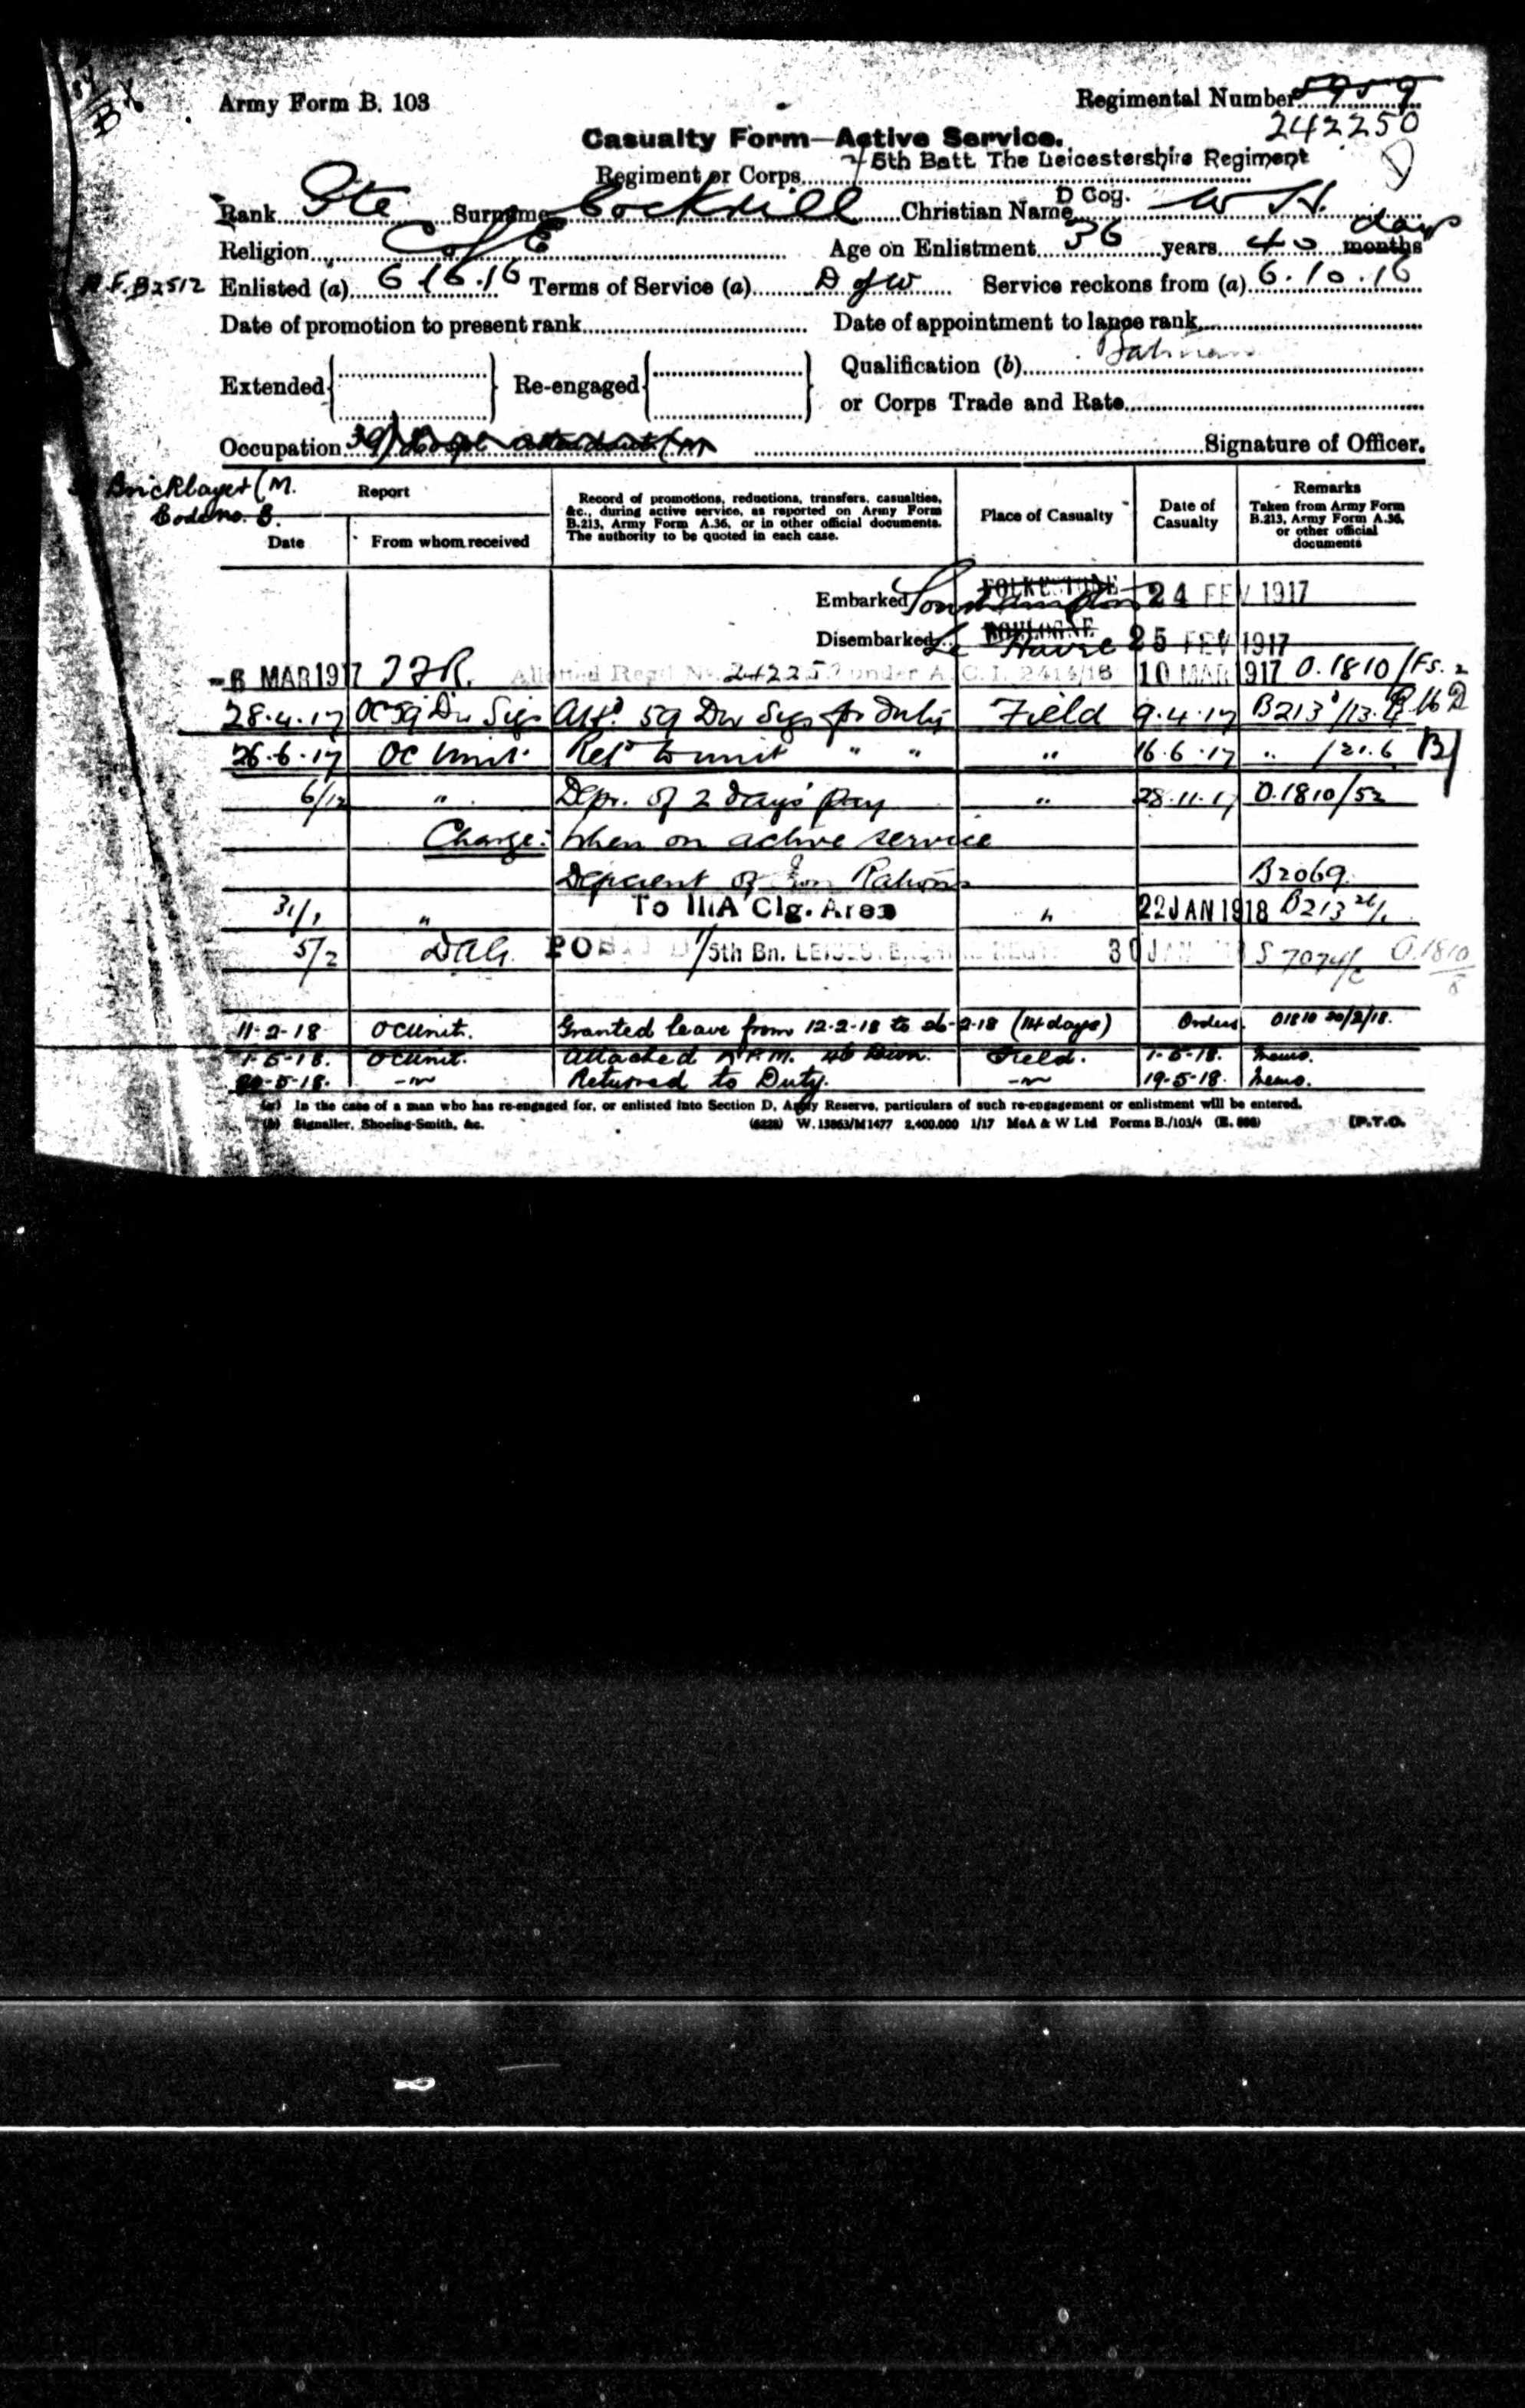 Army Form B. 103
Regimental Number 5959
242250
Casualty Form—Active Service.
Regiment or Corps 2/5th Batt The Leicestershire Regiment
D Coy.
Rank Pte Surname Cockrill Christian Name W H.
Religion C of E Age on Enlistment 36 years 40 months days
A.F.B2512 Enlisted (a) 6.10.16 Terms of Service (a) D of W Service reckons from (a) 6.10.16
Date of promotion to present rank Date of appointment to lance rank
Extended Re-engaged Qualification (b) Batman
or Corps Trade and Rate
Occupation Signature of Officer.
Bricklayer (M.
Code no. 8.
Report
Date From whom received
Record of promotions, reductions, transfers, casualties, &c., during active service, as reported on Army Form B.213, Army Form A.36, or in other official documents. The authority to be quoted in each case.
Place of Casualty
Date of Casualty
Remarks
Taken from Army Form B.213, Army Form A.36, or other official documents
Embarked FOLKESTONE Southampton 24 FEV 1917
Disembarked BOULOGNE Le Havre 25 FEV 1917
6 MAR 1917 Allotted Regtl No. 242250 under A.C.I. 2414/16 10 MAR 1917 O.1810/Fs. 2
28.4.17 OC 59 Div Sigs Attd 59 Div Sigs for duty Field 9.4.17 B213
26.6.17 OC Unit. Retd to unit " " " 16.6.17 " /21.6
6/12 " Depr. of 2 days pay " 28.11.17 O.1810/52
Charge: When on active service
Deficient of Iron Rations B2069.
31/1 " To IIIA Clg. Area " 22 JAN 1918 B213
5/2 DAG. POSTED 1/5th Bn. LEICESTERSHIRE REGT. 30 JAN S 7074/c O.1810
11-2-18 OC Unit. Granted leave from 12-2-18 to 26-2-18 (14 days) Orders O1810 20/2/18.
1-5-18. OC Unit. Attached A.P.M. 46 Divn. Field. 1-5-18. Memo.
20-5-18. Returned to Duty. 19-5-18. Memo.
(a) In the case of a man who has re-engaged for, or enlisted into Section D, Army Reserve, particulars of such re-engagement or enlistment will be entered.
(b) Signaller, Shoeing-Smith, &c. (6228) W. 13863/M1477 2,400,000 1/17 McA & W Ltd Forms B./103/4 [P.T.O.